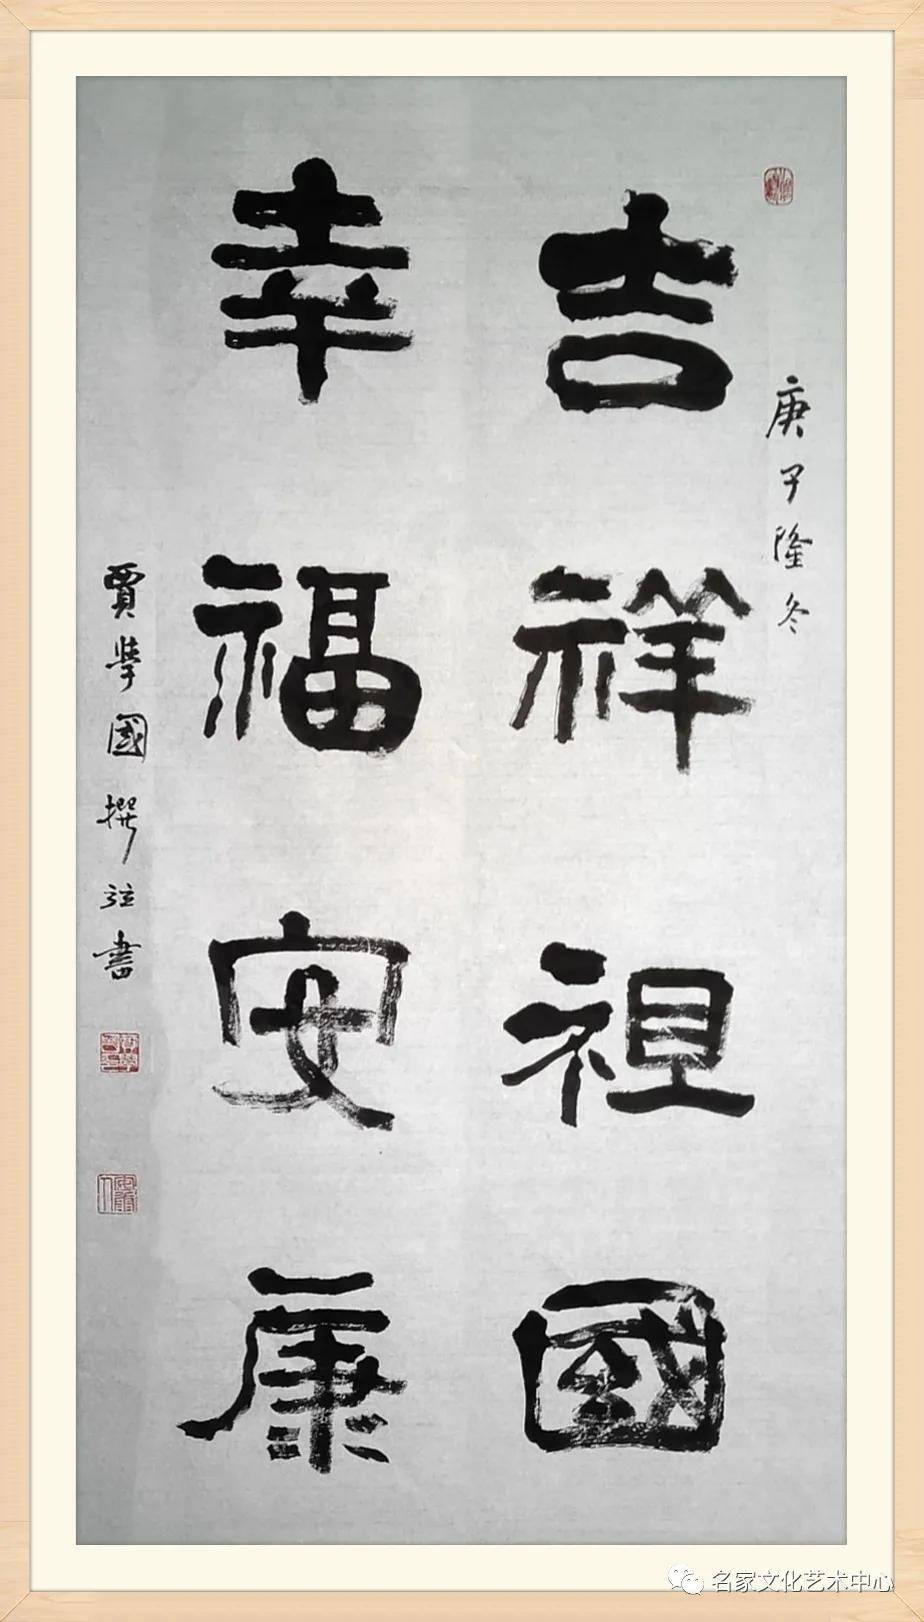 庚子隆冬
吉祥祖國
幸福安康
賈學國撰並書
名家文化艺术中心